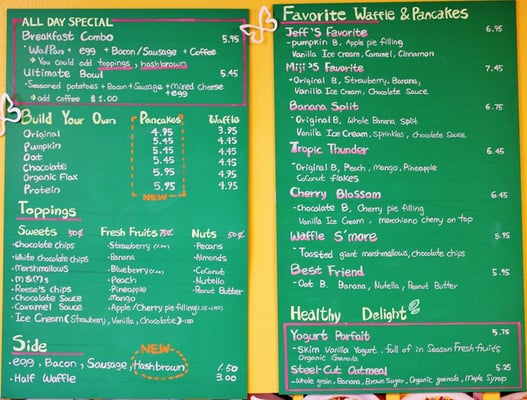 ALL DAY SPECIAL
Breakfast Combo 5.95
- Wa/Pan + egg + Bacon/Sausage + Coffee
→ You could add toppings, hashbrown
Ultimate Bowl 5.45
- Seasoned potatoes + Bacon + Sausage + mixed cheese
+ egg
→ add coffee $1.00
Build Your Own Pancakes Waffle
Original 4.95 3.95
Pumpkin 5.45 4.45
Oat 5.45 4.45
Chocolate 5.45 4.45
Organic Flax 5.95 4.95
Protein 5.95 4.95
NEW
Toppings
Sweets 50¢ Fresh Fruits 75¢ Nuts 50¢
• Chocolate chips • Strawberry • Pecans
• White chocolate chips • Banana • Almonds
• Marshmellows • Blueberry • Coconuts
• M&M's • Peach • Nutella
• Reese's chips • Pineapple • Peanut Butter
• Chocolate Sauce • Mango
• Caramel Sauce • Apple/Cherry pie filling
• Ice Cream (Strawberry, Vanilla, Chocolate)
Side
NEW
• egg, Bacon, Sausage, Hashbrown 1.50
• Half Waffle 3.00
Favorite Waffle & Pancakes
Jeff's Favorite 6.95
- pumpkin B, Apple pie filling
Vanilla Ice cream, Caramel, Cinnamon
Miji's Favorite 7.45
- Original B, Strawberry, Banana,
Vanilla Ice Cream, Chocolate Sauce
Banana Split 6.75
- Original B, Whole Banana Split
Vanilla Ice Cream, Sprinkles, Chocolate Sauce
Tropic Thunder 6.45
- Original B, Peach, Mango, Pineapple
Coconut flakes
Cherry Blossom 6.45
- Chocolate B, Cherry pie filling
Vanilla Ice Cream, marchiano cherry on top
Waffle S'more 5.95
- Toasted giant marshmallows, chocolate chips
Best Friend 5.95
- Oat B. Banana, Nutella, Peanut Butter
Healthy Delight
Yogurt Parfait 5.75
- Skim Vanilla Yogurt, full of in Season Fresh fruit's
Organic Granola
Steel-Cut Oatmeal 5.25
- Whole grain, Banana, Brown Sugar, Organic granola, Maple Syrop